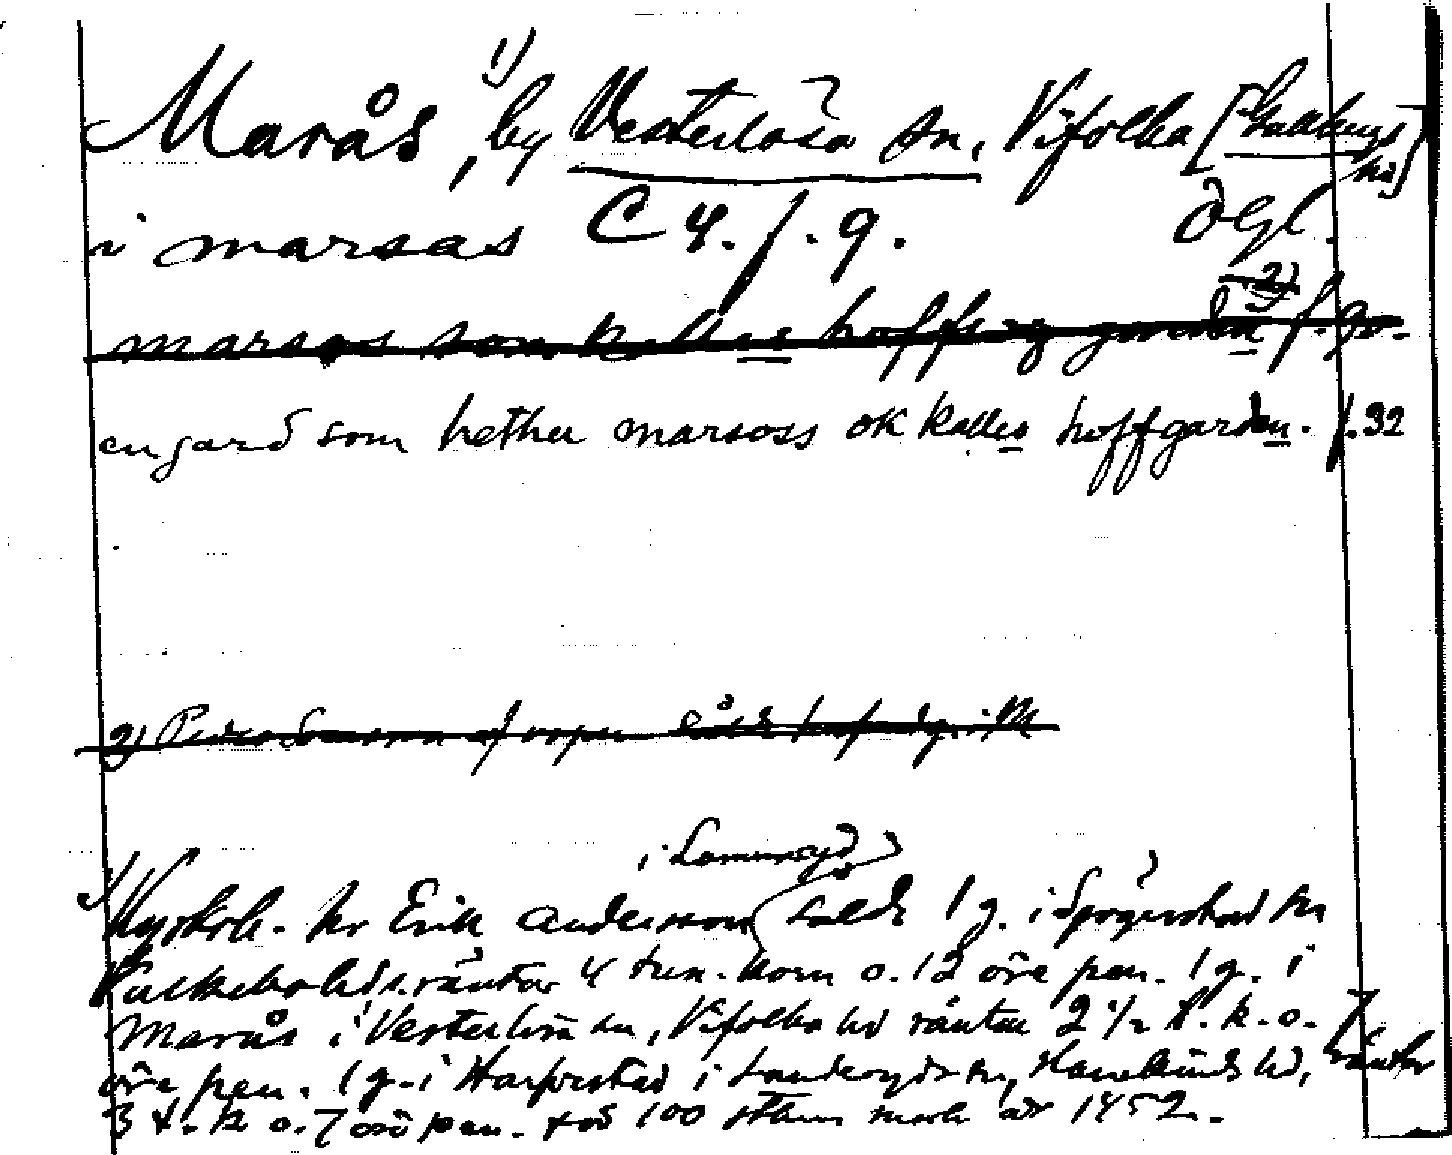 Marås 1), by Vesterlösa sn, Vifolka [Gullbergs
hd]
i marsas C 4. f. 9. Ögl.
marsos som kallas hoffsg garden 2) f. 30.
en gard som hether marsoss ok kalles hoffgarden. f. 32
2) af vapn i M
i Landeryd
1) Kyrkoh. hr Erik Andersson sålde 1 g. i Spögerstad sn
räntar 4 tun. korn o. 12 öre pen. 1 g. i
Marås i Vesterlösa sn, Vifolka hd räntar 2 1/2 t. k. o. 7
öre pen. 1 g. i Harpestad i Landeryds sn, Hanekinds hd, räntar
3 t. k o. 7 öre pen. för 100 sthms mark år 1452.